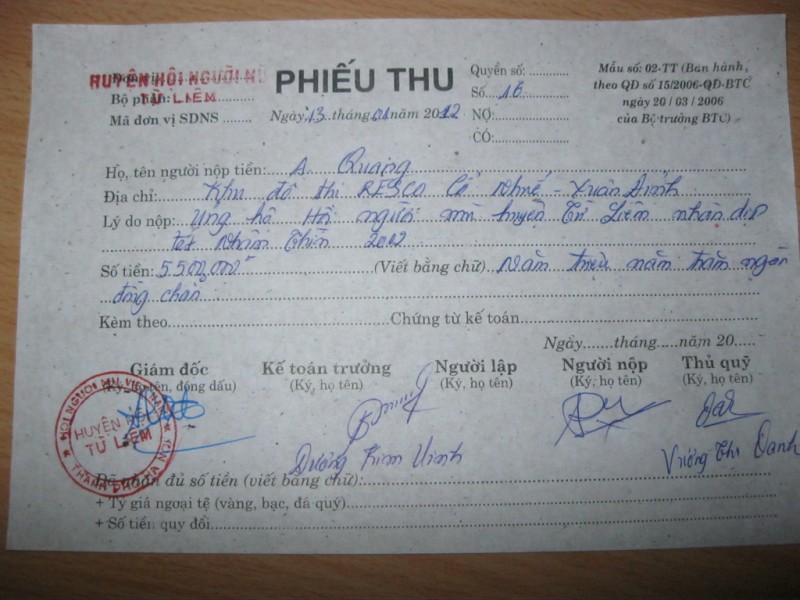 HUYỆN HỘI NGƯỜI MÙ
TỪ LIÊM
Đơn vị:
Bộ phận:
Mã đơn vị SDNS ........
PHIẾU THU
Ngày 13 tháng 01 năm 2012
Quyển số: ............
Số 16
NỢ:
CÓ:
Mẫu số: 02-TT (Ban hành
theo QĐ số 15/2006-QĐ-BTC
ngày 20 / 03 / 2006
của Bộ trưởng BTC)
Họ, tên người nộp tiền: A. Quang
Địa chỉ: Khu đô thị RESCO Cổ Nhuế - Xuân Đỉnh
Lý do nộp: Ủng hộ Hội người mù huyện Từ Liêm nhân dịp
tết Nhâm Thìn 2012
Số tiền: 5.500.000đ (Viết bằng chữ) Năm triệu năm trăm ngàn
đồng chẵn
Kèm theo Chứng từ kế toán
Ngày.......tháng......năm 20.....
Giám đốc Kế toán trưởng Người lập Người nộp Thủ quỹ
(Ký, họ tên, đóng dấu) (Ký, họ tên) (Ký, họ tên) (Ký, họ tên) (Ký, họ tên)
HỘI NGƯỜI MÙ VIỆT NAM
HUYỆN HỘI
TỪ LIÊM
THÀNH PHỐ HÀ NỘI
Dương Kim Vinh
Vương Thị Oanh
Đã nhận đủ số tiền (viết bằng chữ):
+ Tỷ giá ngoại tệ (vàng, bạc, đá quý)
+ Số tiền quy đổi